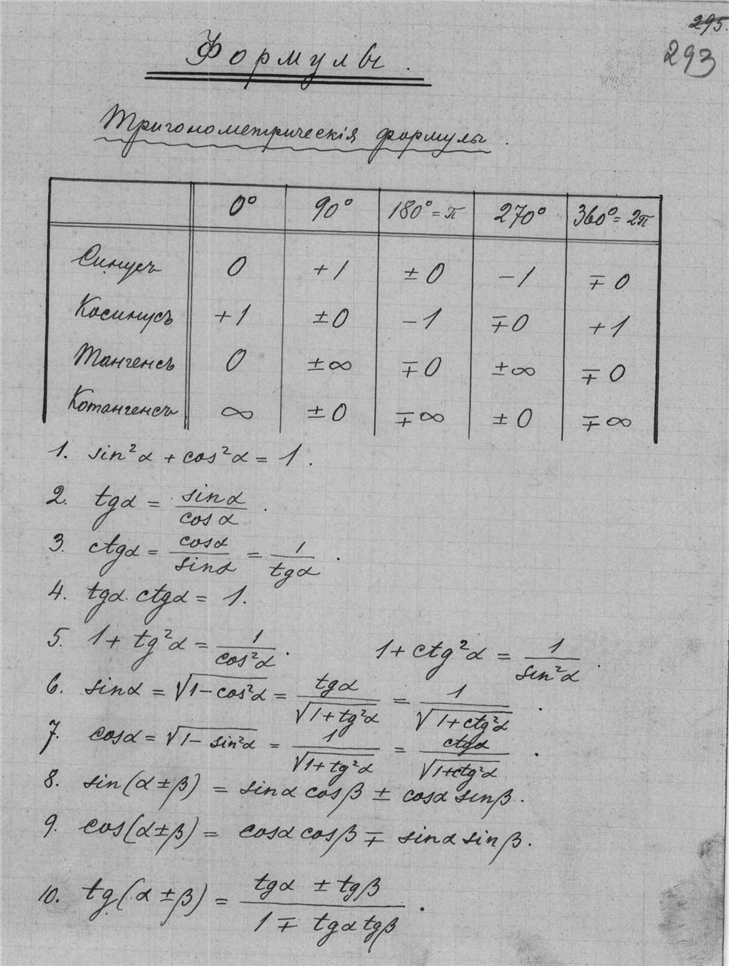 295.
293
Формулы.
Тригонометрическія формулы.
0° 90° 180°=π 270° 360°=2π
Синусъ 0 +1 ±0 −1 ∓0
Косинусъ +1 ±0 −1 ∓0 +1
Тангенсъ 0 ±∞ ∓0 ±∞ ∓0
Котангенсъ ∞ ±0 ∓∞ ±0 ∓∞
1. sin²α + cos²α = 1.
2. tgα = sinα/cosα.
3. ctgα = cosα/sinα = 1/tgα.
4. tgα. ctgα = 1.
5. 1 + tg²α = 1/cos²α. 1 + ctg²α = 1/sin²α.
6. sinα = √(1−cos²α) = tgα/√(1+tg²α) = 1/√(1+ctg²α).
7. cosα = √(1−sin²α) = 1/√(1+tg²α) = ctgα/√(1+ctg²α).
8. sin(α±β) = sinα cosβ ± cosα sinβ.
9. cos(α±β) = cosα cosβ ∓ sinα sinβ.
10. tg(α±β) = (tgα ± tgβ)/(1 ∓ tgα tgβ).